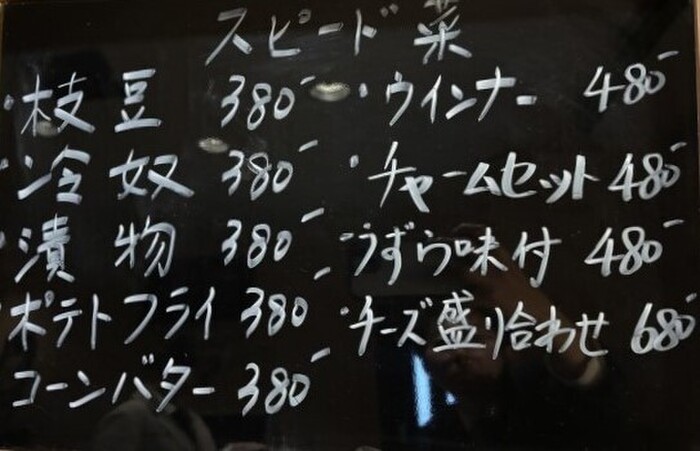 スピード菜
・枝豆 380-
・冷奴 380-
・漬物 380-
・ポテトフライ 380-
コーンバター 380-
・ウインナー 480-
・チャームセット 480-
・うずら味付 480-
・チーズ盛り合わせ 680-